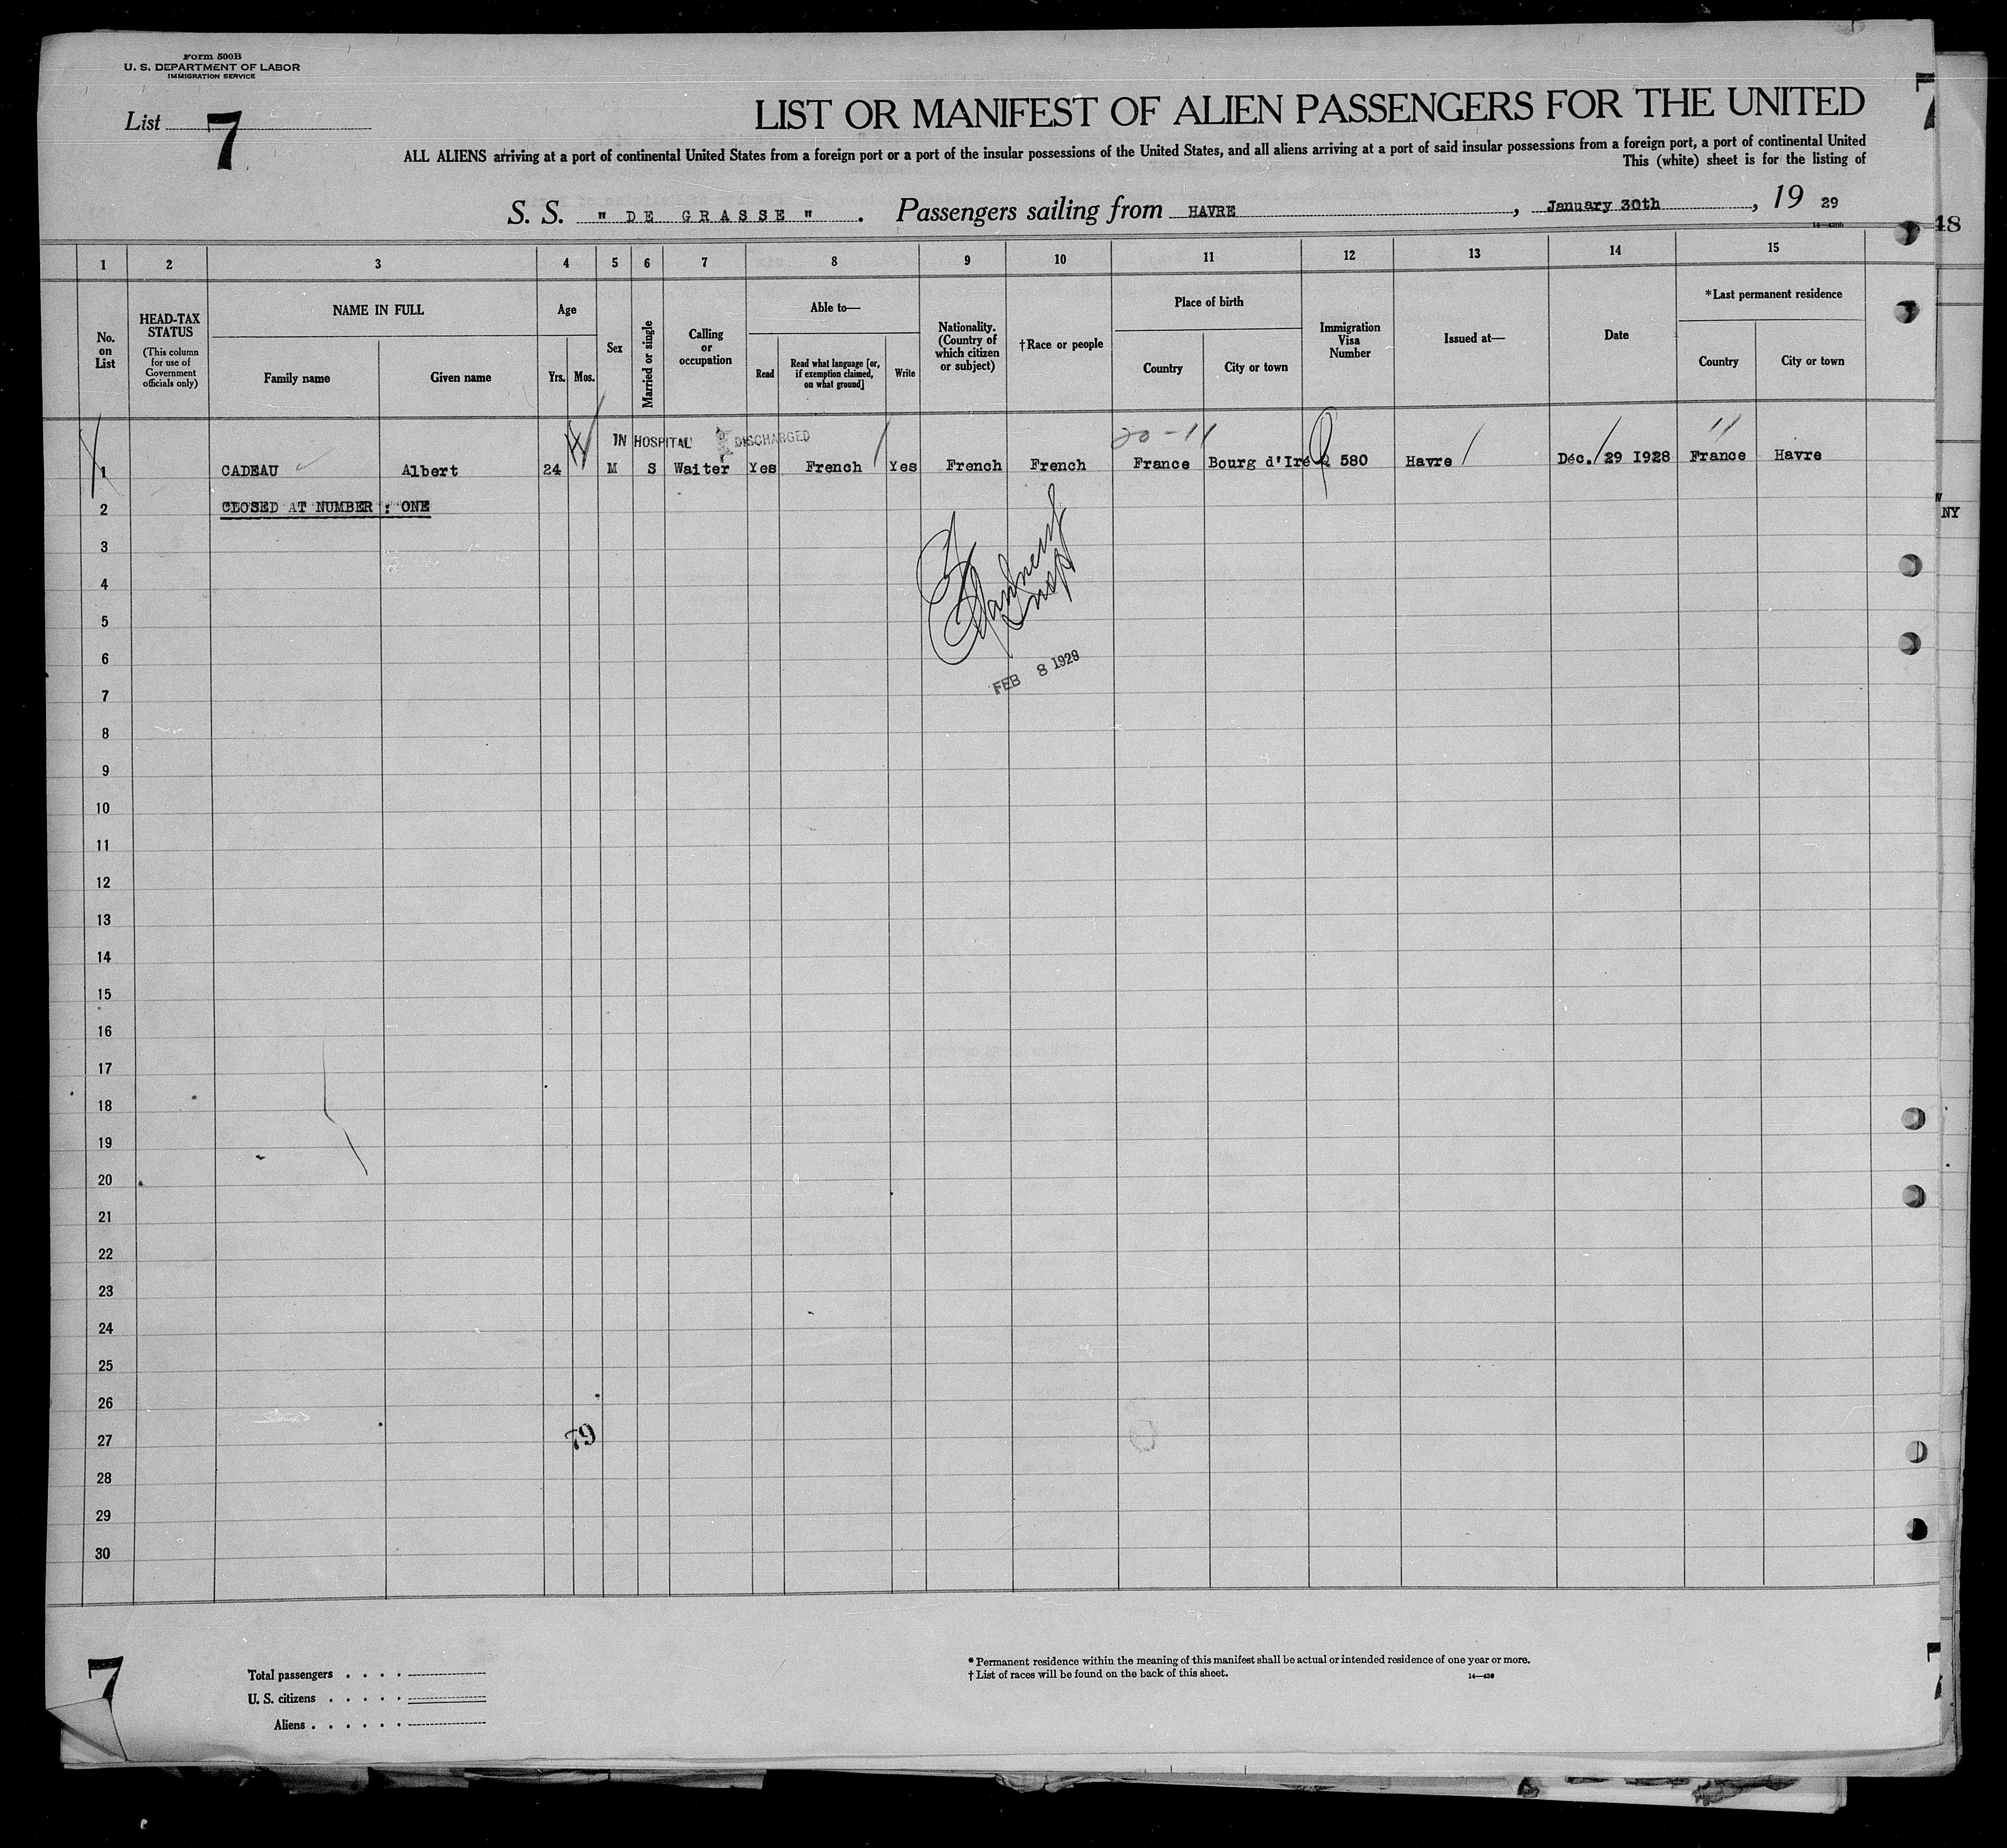 Form 500B
U. S. DEPARTMENT OF LABOR
IMMIGRATION SERVICE
List 7
7
LIST OR MANIFEST OF ALIEN PASSENGERS FOR THE UNITED
ALL ALIENS arriving at a port of continental United States from a foreign port or a port of the insular possessions of the United States, and all aliens arriving at a port of said insular possessions from a foreign port, a port of continental United
This (white) sheet is for the listing of
S. S. " DE GRASSE " . Passengers sailing from HAVRE , January 30th , 19 29
48
1 2 3 4 5 6 7 8 9 10 11 12 13 14 15
No. on List
HEAD-TAX STATUS (This column for use of Government officials only)
NAME IN FULL
Family name
Given name
Age
Yrs. Mos.
Sex
Married or single
Calling or occupation
Able to—
Read
Read what language [or, if exemption claimed, on what ground]
Write
Nationality. (Country of which citizen or subject)
†Race or people
Place of birth
Country
City or town
Immigration Visa Number
Issued at—
Date
*Last permanent residence
Country
City or town
IN HOSPITAL DISCHARGED 20-11 11
1 CADEAU Albert 24 M S Waiter Yes French Yes French French France Bourg d'Iré Q 580 Havre Déc. 29 1928 France Havre
2 CLOSED AT NUMBER : ONE
NY
3
4
5
Insp
6
FEB 8 1929
7
8
9
10
11
12
13
14
15
16
17
18
19
20
21
22
23
24
25
26
27
79
28
29
30
7
Total passengers . . . .
U. S. citizens . . . . .
Aliens . . . . . .
* Permanent residence within the meaning of this manifest shall be actual or intended residence of one year or more.
† List of races will be found on the back of this sheet.
14—430
7